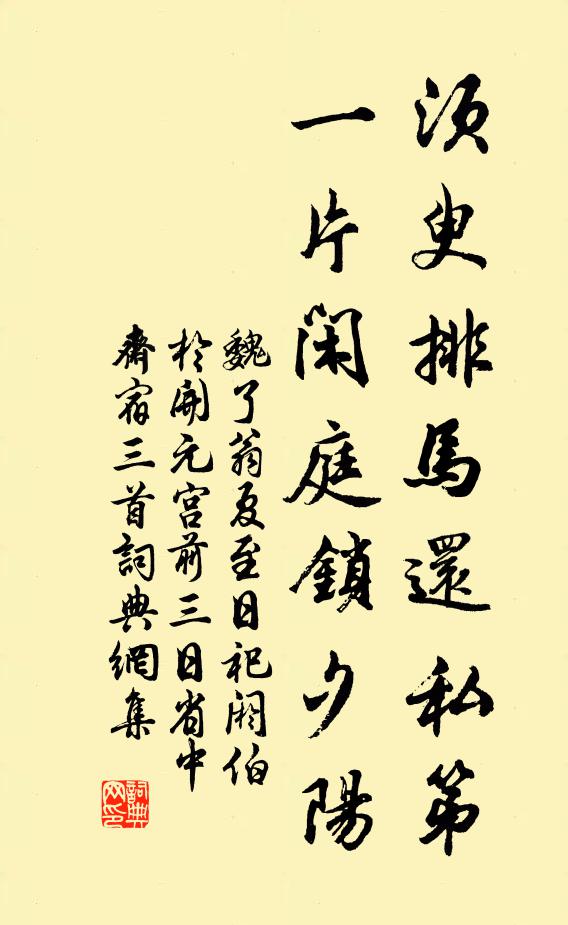 須臾排馬還私第
一片閑庭鎖夕陽
魏了翁夏至日祀阏伯
於開元宮前三日省中
齋宿三首詞典網集
詞典
网印